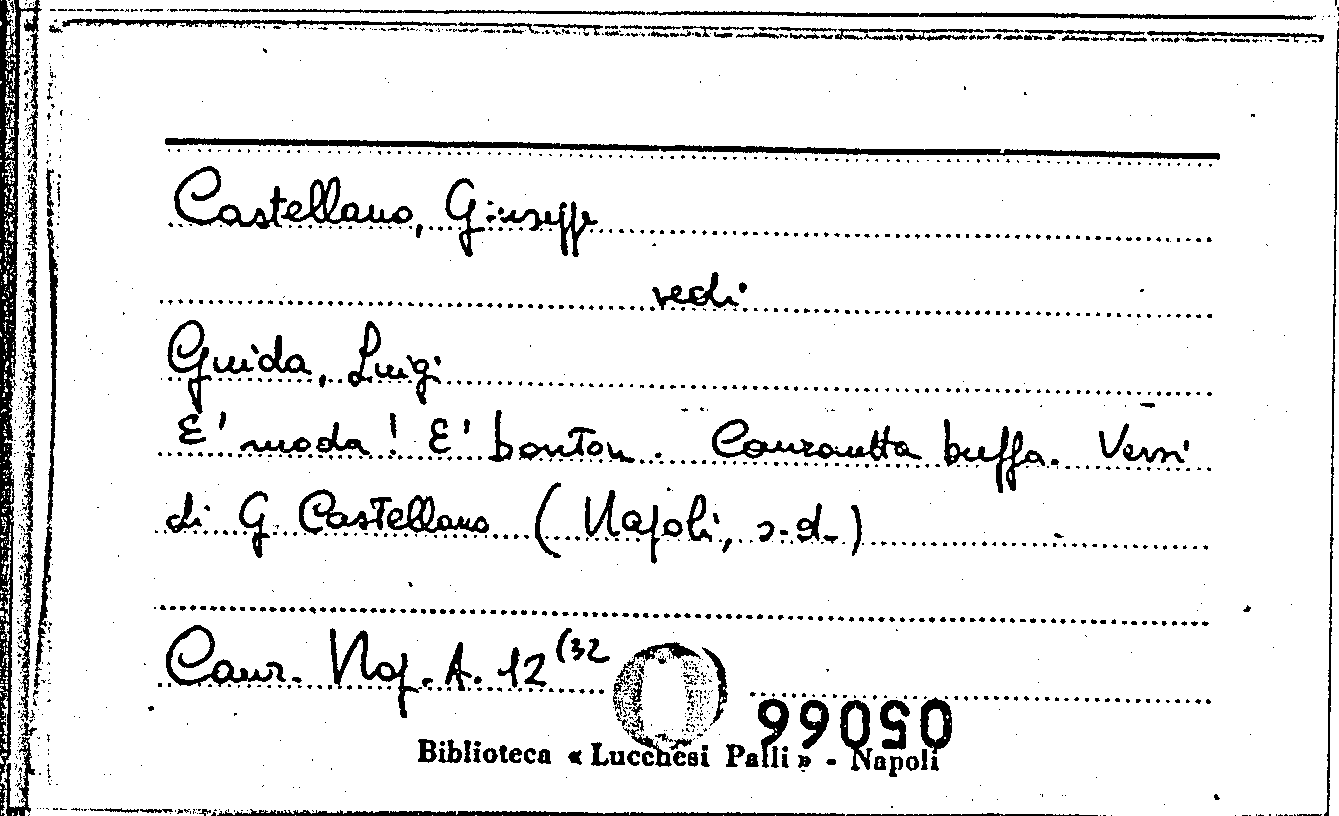 Castellano, Giuseppe
vedi
Guida, Luigi
E' moda! E' bonton. Canzonetta buffa. Versi
di G. Castellano (Napoli, s.d.)
Canz. Nap. A. 12 (32
05066
Biblioteca « Lucchesi Palli » - Napoli